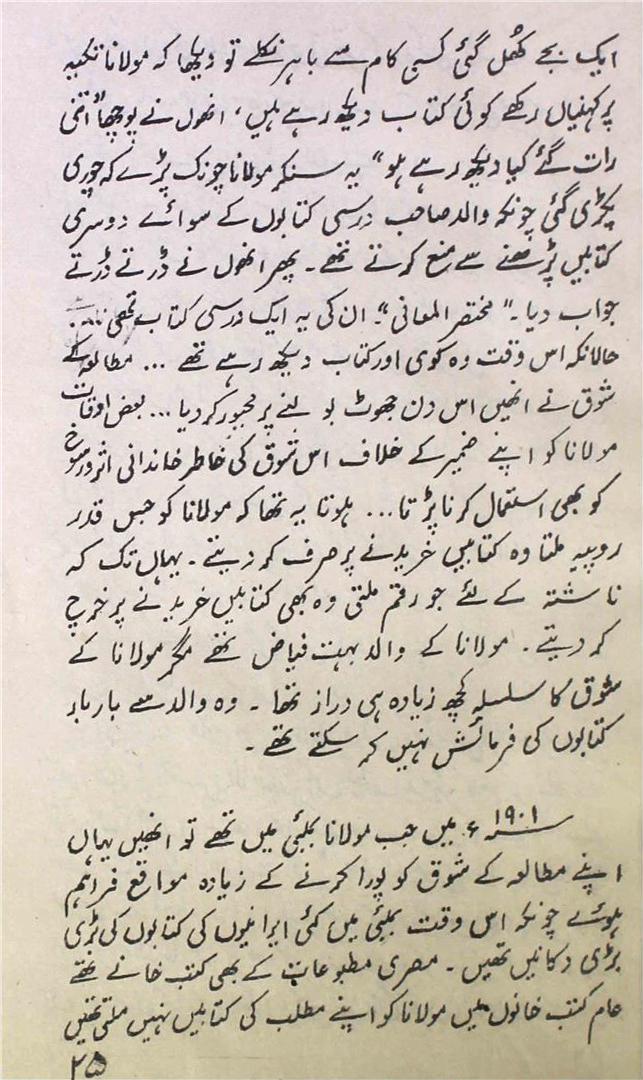 ایک بجے کھُل گئی کسی کام سے باہر نکلے تو دیکھا کہ مولانا تکیہ
پر کہنیاں رکھے کوئی کتاب دیکھ رہے ہیں، انھوں نے پوچھا "اتنی
رات گئے کیا دیکھ رہے ہو" یہ سنکر مولانا چونک پڑے کہ چوری
پکڑی گئی چونکہ والد صاحب درسی کتابوں کے سوائے دوسری
کتابیں پڑھنے سے منع کرتے تھے۔ پھر انھوں نے ڈرتے ڈرتے
جواب دیا۔ "مختصر المعانی"۔ ان کی یہ ایک درسی کتاب تھی ...
حالانکہ اس وقت وہ کوی اور کتاب دیکھ رہے تھے ... مطالعہ کے
شوق نے انھیں اس دن جھوٹ بولنے پر مجبور کر دیا ... بعض اوقات
مولانا کو اپنے ضمیر کے خلاف اس شوق کی خاطر خاندانی اثر و رسوخ
کو بھی استعمال کرنا پڑتا ... ہوتا یہ تھا کہ مولانا کو جس قدر
روپیہ ملتا وہ کتابیں خریدنے پر صرف کر دیتے۔ یہاں تک کہ
ناشتہ کے لئے جو رقم ملتی وہ بھی کتابیں خریدنے پر خرچ
کر دیتے۔ مولانا کے والد بہت فیاض تھے مگر مولانا کے
شوق کا سلسلہ کچھ زیادہ ہی دراز تھا۔ وہ والد سے بار بار
کتابوں کی فرمائش نہیں کر سکتے تھے۔
۱۹۰۱ء میں جب مولانا بمبئی میں تھے تو انھیں یہاں
اپنے مطالعہ کے شوق کو پورا کرنے کے زیادہ مواقع فراہم
ہوئے چونکہ اس وقت بمبئی میں کئی ایرانیوں کی کتابوں کی بڑی
بڑی دکانیں تھیں۔ مصری مطبوعات کے بھی کتب خانے تھے
عام کتب خانوں میں مولانا کو اپنے مطلب کی کتابیں نہیں ملتی تھیں
۲۵